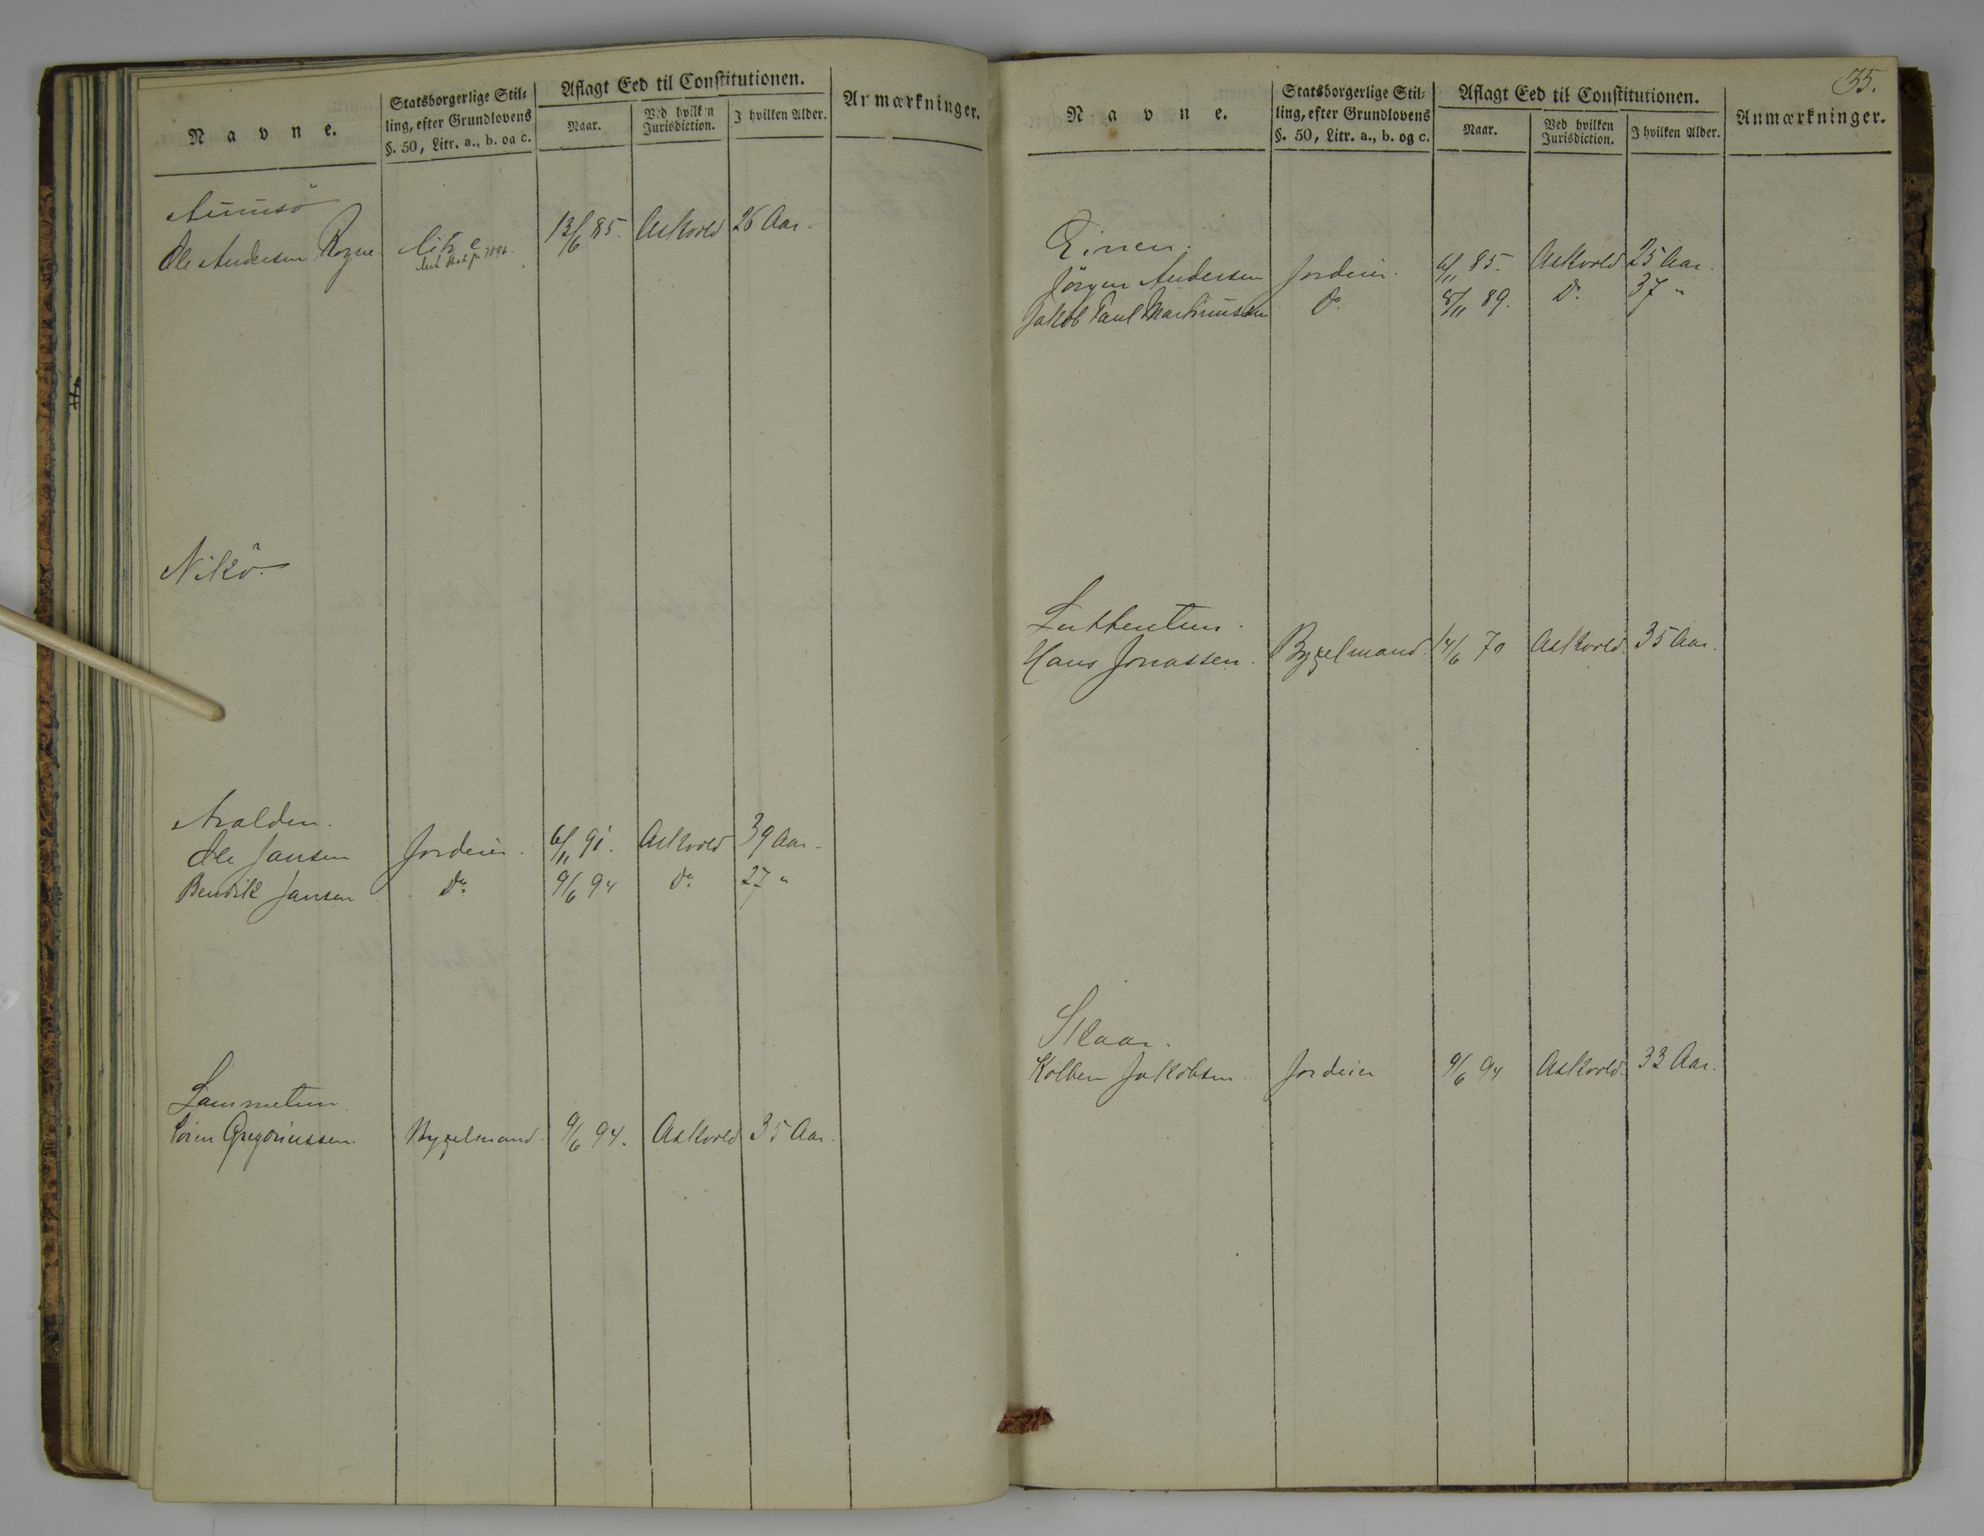 Navne.
Statsborgerlige Stil-
ling, efter Grundlovens
§. 50, Litr. a., b. og c.
Aflagt Eed til Constitutionen.
Naar.
Ved hvilken
Jurisdiction.
I hvilken Alder.
Anmærkninger.
Ole Andersen Rogne. Litr c 13/6 85. Askvold 26 Aar.
Nikö.
Aralden.
Ole Jansen Jordeier. 6/11 91. Askvold 39 Aar.
Bendik Jansen Do. 9/6 94 Do. 27 "
Lammetun.
Sören Gregoriussen. Bygselmand. 9/6 94. Askvold 35 Aar.
35.
Navne.
Statsborgerlige Stil-
ling, efter Grundlovens
§. 50, Litr. a., b. og c.
Aflagt Eed til Constitutionen.
Naar.
Ved hvilken
Jurisdiction.
I hvilken Alder.
Anmærkninger.
Einen.
Jörgen Andersen Jordeier. 6/11 85. Askvold. 25 Aar.
Jakob Paul Martinussen Do. 8/11 89. Do. 37 "
Luttentun.
Hans Jonassen. Bygselmand. 14/6 70 Askvold. 35 Aar.
Skaar.
Kolben Jakobsen Jordeier 9/6 94 Askvold. 33 Aar.